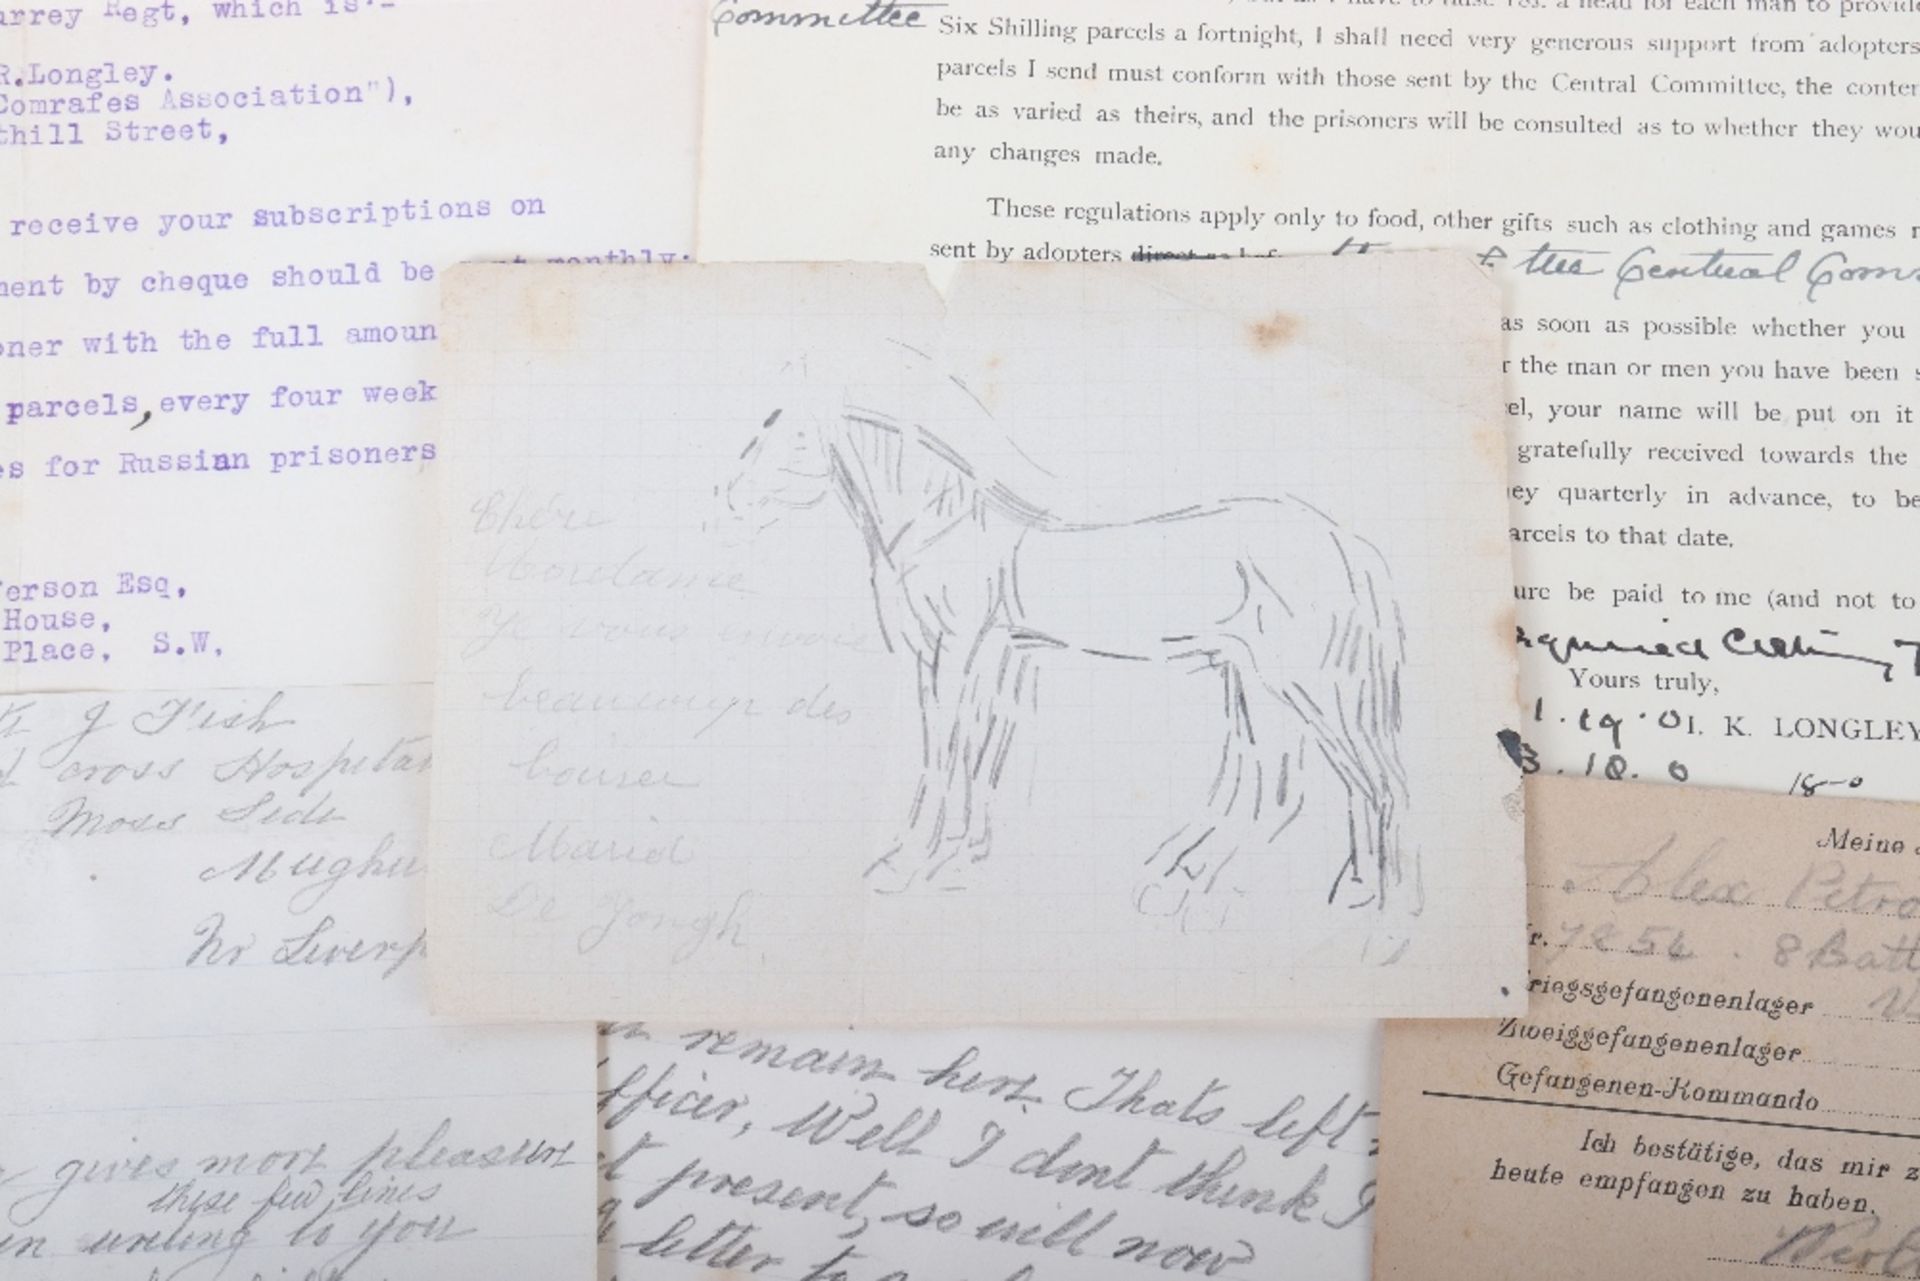 urrey Regt, which is:-
R.Longley.
Comrafes Association"),
thill Street,
receive your subscriptions on
ment by cheque should be sent monthly:
oner with the full amoun
parcels, every four week
es for Russian prisoners
erson Esq,
House,
Place, S.W.
Committee
a head for each man to provide
Six Shilling parcels a fortnight, I shall need very generous support from adopters
parcels I send must conform with those sent by the Central Committee, the conten
be as varied as theirs, and the prisoners will be consulted as to whether they wou
any changes made.
These regulations apply only to food, other gifts such as clothing and games
sent by adopters the Central Com
as soon as possible whether you
r the man or men you have been s
el, your name will be put on it
gratefully received towards the
ey quarterly in advance, to be
arcels to that date.
ure be paid to me (and not to
Yours truly,
I. K. LONGLEY
18-0
Chère
Je vous envoie
beaucoup des
Marid
De Jongh
J Fish
cross Hospital
Moss Side
Maghu
Nr Liverp
gives more pleasure
these few lines
in writing to you
remain here. Thats left
fficer, Well I dont think I
t present, so will now
letter to
Meine
Alex Petro
r. 7854. 8 Batt
riegsgefangenenlager
Zweiggefangenenlager
Gefangenen-Kommando
Ich bestätige, das mir z
heute empfangen zu haben.